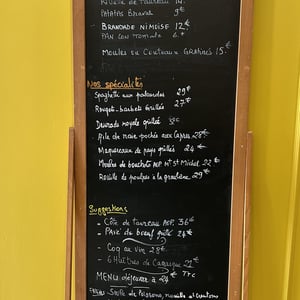 Rouille de Taureau 14.
Patatas Bravas 9€
BRANDADE NÎMOISE 12€
PAN CON Tomate 6.€
Moules ou Couteaux GRATINÉS 15€
Nos spécialités
Spaghetti aux palourdes 29€
Rougets-barbets grillés 27€
Daurade royale grillée
Aile de raie pochée aux Capres 28€
Maquereaux de pays grillés 24€
Moules de bouchots AOP Mt St Michel 22€
Rouille de poulpes à la graulenne 29€
Suggestions
- Côte de taureau AOP. 36€
- Pavé de boeuf grillé 28€
- Coq au vin 28€
- 6 Huîtres de Camargue 21€
MENU déjeuner à 24€ TTC